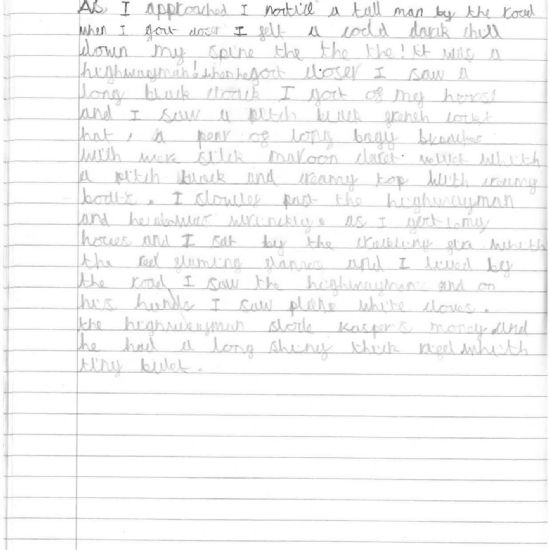 As I approached I norticd a tall man by the road
when I gout closer I felt a codd dark chill
down my spine the the the! It was a
highwayman! when he gout closer I saw a
long black clouck I gout of my horse
and I saw a pitch black french cocket
hat, a pear of long bagy
with maroon claret whith
a pitch black and creamy top with creamy
boots. I slowley past the highwayman
and he wrinckley. as I gout my
horses and I sat by the fire whith
the red flaming flames and I by
the road, I saw the highwayman and on
his hands I saw plane white cloves.
the highwayman stole Kasper's money and
he had a long shiny thick whith
tiny bulet.